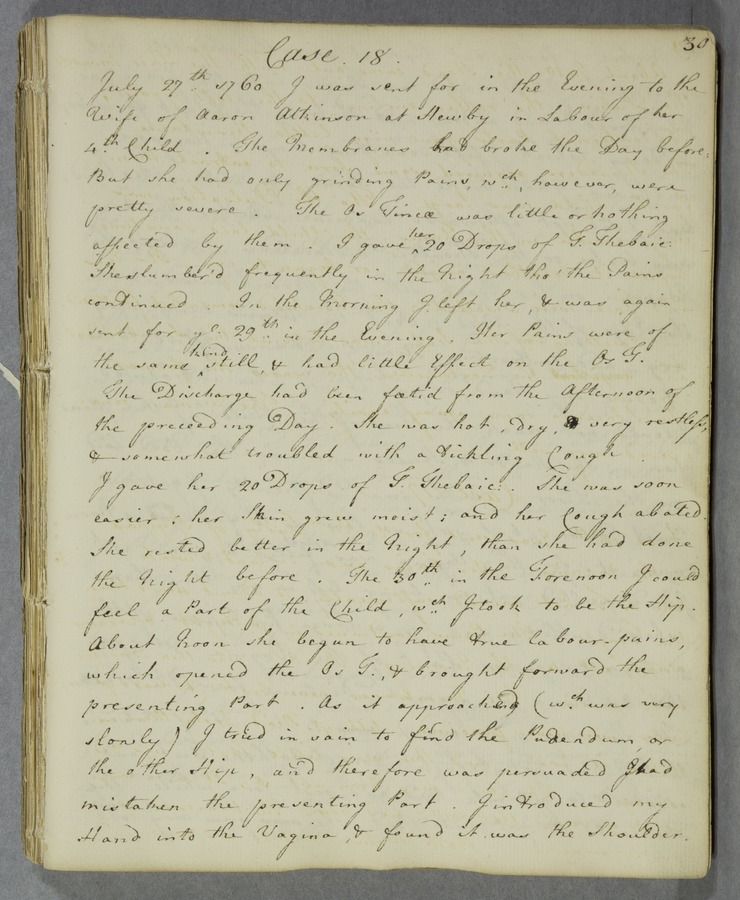 30
Case. 18.
July 27th. 1760 I was sent for in the Evening to the
Wife of Aaron Atkinson at Newby in Labour of her
4th. Child. The Membranes had broke the Day before:
But she had only grinding Pains, wch., however, were
pretty severe. The Os Tincæ was little or nothing
affected by them. I gave her 20 Drops of T. Thebaic:
She slumber'd frequently in the Night tho' the Pains
continued. In the Morning I left her, & was again
sent for ye. 29th. in the Evening. Her Pains were of
the same kind still, & had little Effect on the Os T.
The Discharge had been fœtid from the Afternoon of
the preceeding Day. She was hot, dry, very restless,
& somewhat troubled with a tickling Cough.
I gave her 20 Drops of T. Thebaic:. She was soon
easier; her Skin grew moist; and her Cough abated.
She rested better in the Night, than she had done
the Night before. The 30th. in the Forenoon I could
feel a Part of the Child, wch. I took to be the Hip.
About Noon she begun to have true labour-pains,
which opened the Os T., & brought forward the
presenting Part. As it approached (wch. was very
slowly) I tried in vain to find the Pudendum, or
the other Hip, and therefore was persuaded I had
mistaken the presenting Part. I introduced my
Hand into the Vagina, & found it was the Shoulder.